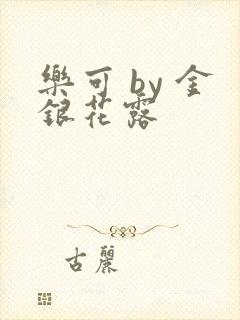 樂可 by 金
銀花露
古麗